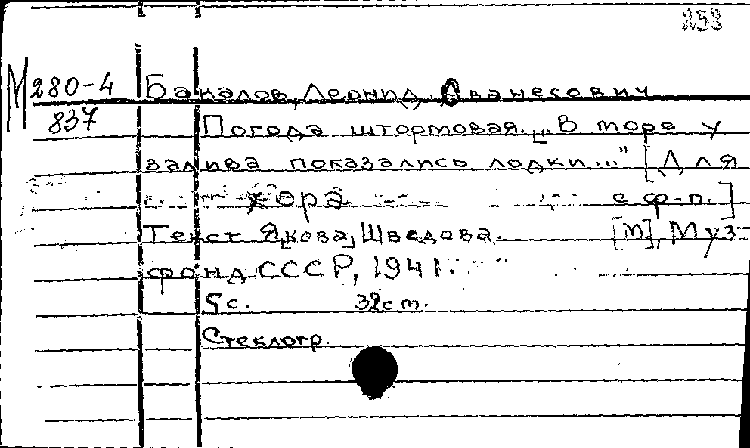 253
М 280-4 Бакалов, Леонид Ованесович
837 Погода штормовая. "В море у
залива показались лодки..." [Для
хора с ф-п.]
Текст Якова Шведова. [М], Муз-
фонд СССР, 1941.
5 с. 32 cm.
Стеклогр.